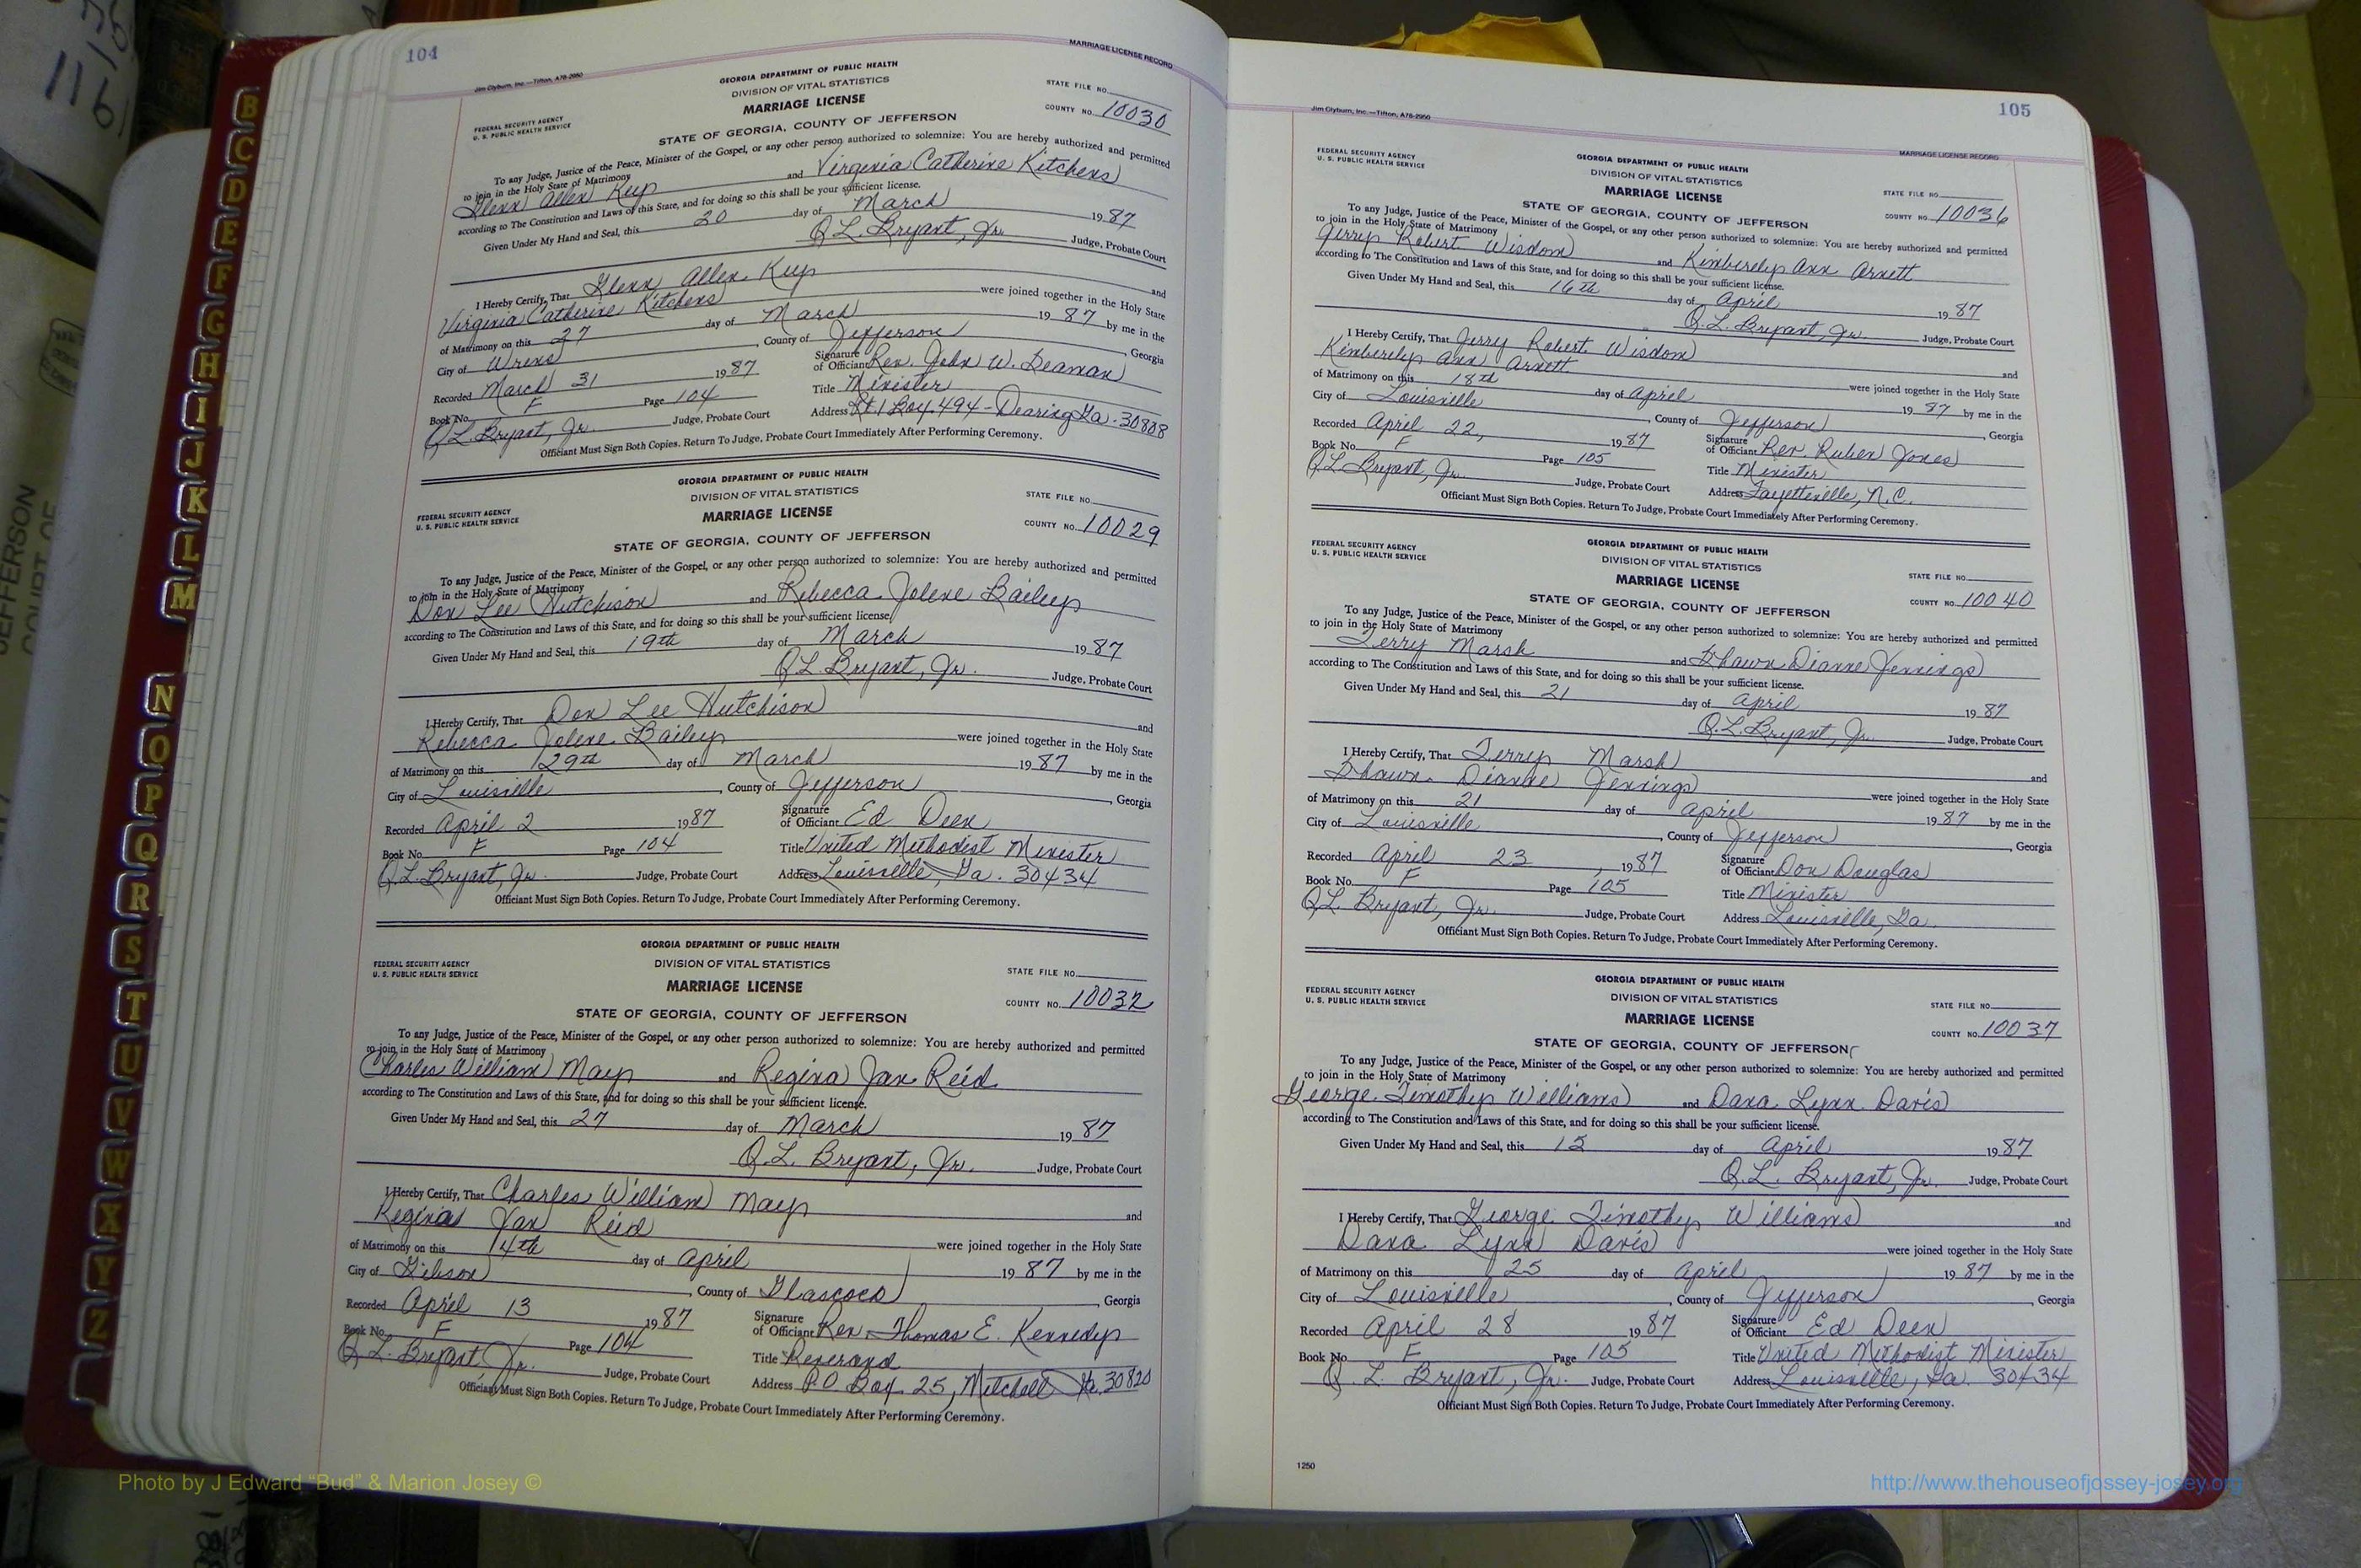 104
Jim Clyburn, Inc.—Tifton, A78-2950
MARRIAGE LICENSE RECORD
GEORGIA DEPARTMENT OF PUBLIC HEALTH
DIVISION OF VITAL STATISTICS
MARRIAGE LICENSE
STATE FILE NO.
COUNTY NO. 10030
FEDERAL SECURITY AGENCY
U. S. PUBLIC HEALTH SERVICE
STATE OF GEORGIA, COUNTY OF JEFFERSON
To any Judge, Justice of the Peace, Minister of the Gospel, or any other person authorized to solemnize: You are hereby authorized and permitted
to join in the Holy State of Matrimony
Glenn Allen Key and Virginia Catherine Kitchens
according to The Constitution and Laws of this State, and for doing so this shall be your sufficient license.
Given Under My Hand and Seal, this 20 day of March 1987
Q.L. Bryant, Jr. Judge, Probate Court
I Hereby Certify, That Glenn Allen Key and
Virginia Catherine Kitchens were joined together in the Holy State
of Matrimony on this 27 day of March 1987 by me in the
City of Wrens, County of Jefferson, Georgia
Recorded March 31 1987 Signature of Officiant Rev. John W. Deaman
Book No. F Page 104 Title Minister
Q.L. Bryant, Jr. Judge, Probate Court Address Rt 1 Box 494 - Dearing Ga. 30808
Officiant Must Sign Both Copies. Return To Judge, Probate Court Immediately After Performing Ceremony.
GEORGIA DEPARTMENT OF PUBLIC HEALTH
DIVISION OF VITAL STATISTICS
MARRIAGE LICENSE
STATE FILE NO.
COUNTY NO. 10029
FEDERAL SECURITY AGENCY
U. S. PUBLIC HEALTH SERVICE
STATE OF GEORGIA, COUNTY OF JEFFERSON
To any Judge, Justice of the Peace, Minister of the Gospel, or any other person authorized to solemnize: You are hereby authorized and permitted
to join in the Holy State of Matrimony
Don Lee Hutchison and Rebecca Jolene Bailey
according to The Constitution and Laws of this State, and for doing so this shall be your sufficient license.
Given Under My Hand and Seal, this 19th day of March 1987
Q.L. Bryant, Jr. Judge, Probate Court
I Hereby Certify, That Don Lee Hutchison and
Rebecca Jolene Bailey were joined together in the Holy State
of Matrimony on this 29th day of March 1987 by me in the
City of Louisville, County of Jefferson, Georgia
Recorded April 2 1987 Signature of Officiant Ed Deen
Book No. F Page 104 Title United Methodist Minister
Q.L. Bryant, Jr. Judge, Probate Court Address Louisville, Ga. 30434
Officiant Must Sign Both Copies. Return To Judge, Probate Court Immediately After Performing Ceremony.
GEORGIA DEPARTMENT OF PUBLIC HEALTH
DIVISION OF VITAL STATISTICS
MARRIAGE LICENSE
STATE FILE NO.
COUNTY NO. 10032
FEDERAL SECURITY AGENCY
U. S. PUBLIC HEALTH SERVICE
STATE OF GEORGIA, COUNTY OF JEFFERSON
To any Judge, Justice of the Peace, Minister of the Gospel, or any other person authorized to solemnize: You are hereby authorized and permitted
to join in the Holy State of Matrimony
Charles William May and Regina Jan Reid
according to The Constitution and Laws of this State, and for doing so this shall be your sufficient license.
Given Under My Hand and Seal, this 27 day of March 1987
Q.L. Bryant, Jr. Judge, Probate Court
I Hereby Certify, That Charles William May and
Regina Jan Reid were joined together in the Holy State
of Matrimony on this 4th day of April 1987 by me in the
City of Gibson, County of Glascock, Georgia
Recorded April 13 1987 Signature of Officiant Rev. Thomas E. Kennedy
Book No. F Page 104 Title Reverand
Q.L. Bryant, Jr. Judge, Probate Court Address P.O. Box 25, Mitchell Ga. 30820
Officiant Must Sign Both Copies. Return To Judge, Probate Court Immediately After Performing Ceremony.
105
Jim Clyburn, Inc.—Tifton, A78-2950
MARRIAGE LICENSE RECORD
FEDERAL SECURITY AGENCY
U. S. PUBLIC HEALTH SERVICE
GEORGIA DEPARTMENT OF PUBLIC HEALTH
DIVISION OF VITAL STATISTICS
MARRIAGE LICENSE
STATE FILE NO.
COUNTY NO. 10036
STATE OF GEORGIA, COUNTY OF JEFFERSON
To any Judge, Justice of the Peace, Minister of the Gospel, or any other person authorized to solemnize: You are hereby authorized and permitted
to join in the Holy State of Matrimony
Jerry Robert Wisdom and Kimberely Ann Arnett
according to The Constitution and Laws of this State, and for doing so this shall be your sufficient license.
Given Under My Hand and Seal, this 16th day of April 1987
Q.L. Bryant, Jr. Judge, Probate Court
I Hereby Certify, That Jerry Robert Wisdom and
Kimberely Ann Arnett were joined together in the Holy State
of Matrimony on this 18th day of April 1987 by me in the
City of Louisville, County of Jefferson, Georgia
Recorded April 22, 1987 Signature of Officiant Rev. Ruben Jones
Book No. F Page 105 Title Minister
Q.L. Bryant, Jr. Judge, Probate Court Address Fayetteville, N.C.
Officiant Must Sign Both Copies. Return To Judge, Probate Court Immediately After Performing Ceremony.
FEDERAL SECURITY AGENCY
U. S. PUBLIC HEALTH SERVICE
GEORGIA DEPARTMENT OF PUBLIC HEALTH
DIVISION OF VITAL STATISTICS
MARRIAGE LICENSE
STATE FILE NO.
COUNTY NO. 10040
STATE OF GEORGIA, COUNTY OF JEFFERSON
To any Judge, Justice of the Peace, Minister of the Gospel, or any other person authorized to solemnize: You are hereby authorized and permitted
to join in the Holy State of Matrimony
Terry Marsh and Shawn Dianne Jennings
according to The Constitution and Laws of this State, and for doing so this shall be your sufficient license.
Given Under My Hand and Seal, this 21 day of April 1987
Q.L. Bryant, Jr. Judge, Probate Court
I Hereby Certify, That Terry Marsh and
Shawn Dianne Jennings were joined together in the Holy State
of Matrimony on this 21 day of April 1987 by me in the
City of Louisville, County of Jefferson, Georgia
Recorded April 23, 1987 Signature of Officiant Don Douglas
Book No. F Page 105 Title Minister
Q.L. Bryant, Jr. Judge, Probate Court Address Louisville, Ga.
Officiant Must Sign Both Copies. Return To Judge, Probate Court Immediately After Performing Ceremony.
FEDERAL SECURITY AGENCY
U. S. PUBLIC HEALTH SERVICE
GEORGIA DEPARTMENT OF PUBLIC HEALTH
DIVISION OF VITAL STATISTICS
MARRIAGE LICENSE
STATE FILE NO.
COUNTY NO. 10037
STATE OF GEORGIA, COUNTY OF JEFFERSON
To any Judge, Justice of the Peace, Minister of the Gospel, or any other person authorized to solemnize: You are hereby authorized and permitted
to join in the Holy State of Matrimony
George Timothy Williams and Dana Lynn Davis
according to The Constitution and Laws of this State, and for doing so this shall be your sufficient license.
Given Under My Hand and Seal, this 15 day of April 1987
Q.L. Bryant, Jr. Judge, Probate Court
I Hereby Certify, That George Timothy Williams and
Dana Lynn Davis were joined together in the Holy State
of Matrimony on this 25 day of April 1987 by me in the
City of Louisville, County of Jefferson, Georgia
Recorded April 28 1987 Signature of Officiant Ed Deen
Book No. F Page 105 Title United Methodist Minister
Q.L. Bryant, Jr. Judge, Probate Court Address Louisville, Ga. 30434
Officiant Must Sign Both Copies. Return To Judge, Probate Court Immediately After Performing Ceremony.
1250
B
C
D
E
F
G
H
I
J
K
L
M
N
O
P
Q
R
S
T
U
V
W
X
Y
Z
JEFFERSON
COURT OF
Photo by J Edward “Bud” & Marion Josey ©
http://www.thehouseofjossey-josey.org